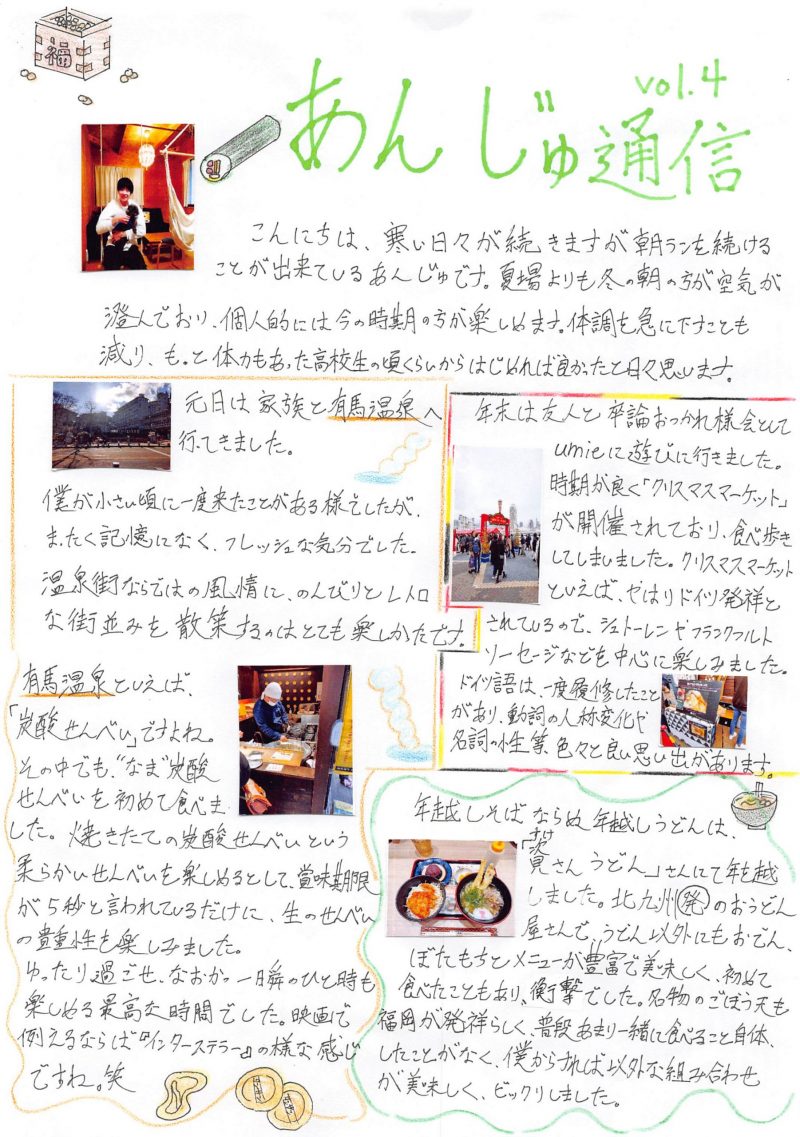 福
あんじゅ通信
vol.4
こんにちは、寒い日々が続きますが朝ランを続ける
ことが出来ているあんじゅです。夏場よりも冬の朝の方が空気が
澄んでおり、個人的には今の時期の方が楽しめます。体調を急に下すことも
減り、もっと体力もあった高校生の頃くらいからはじめれば良かったと日々思います。
元日は家族と有馬温泉へ
行ってきました。
僕が小さい頃に一度来たことがある様でしたが、
まったく記憶になく、フレッシュな気分でした。
温泉街ならではの風情に、のんびりとレトロ
な街並みを散策するのはとても楽しかたです。
有馬温泉といえば、
「炭酸せんべい」ですよね。
その中でも、"なま"炭酸
せんべいを初めて食べま
した。焼きたての炭酸せんべいという
柔らかいせんべいを楽しめるとして、賞味期限
が5秒と言われているだけに、生のせんべい
の貴重性を楽しみました。
ゆったり過ごせ、なおかつ一瞬のひと時も
楽しめる最高な時間でした。映画で
例えるならば『インターステラー』の様な感じ
ですね。笑
年末は友人と卒論おつかれ様会として
umieに遊びに行きました。
時期が良く「クリスマスマーケット」
が開催されており、食べ歩き
してしまいました。クリスマスマーケット
といえば、やはりドイツ発祥と
されているので、シュトーレンやフランクフルト
ソーセージなどを中心に楽しみました。
ドイツ語は、一度履修したこと
があり、動詞の人称変化や
名詞の性等、色々と良い思い出があります。
年越しそばならぬ年越しうどんは、
「資さんうどん」さんにて年を越
しました。北九州発のおうどん
屋さんで、うどん以外にもおでん、
ぼたもちとメニューが豊富で美味しく、初めて
食べたこともあり、衝撃でした。名物のごぼう天も
福岡が発祥らしく、普段あまり一緒に食べること自体、
したことがなく、僕からすれば以外な組み合わせ
が美味しく、ビックリしました。